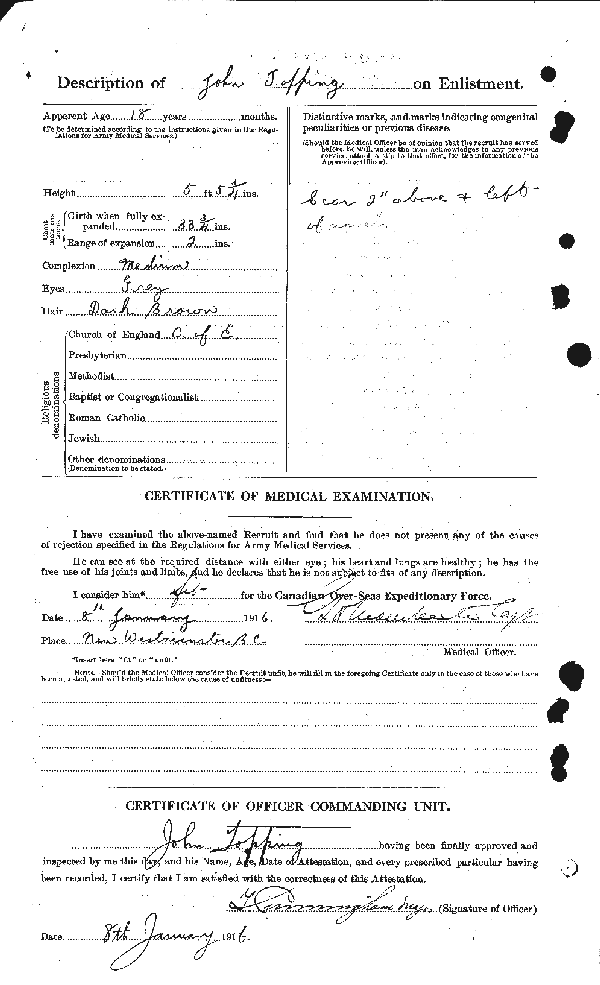 Description of John Topping on Enlistment.
Apparent Age 18 years months.
(To be determined according to the instructions given in the Regulations for Army Medical Services.)
Height 5 ft 5 1/4 ins.
Chest measurement
Girth when fully expanded 33 3/4 ins.
Range of expansion 2 ins.
Complexion Medium
Eyes Grey
Hair Dark Brown
Religious denominations
Church of England C of E
Presbyterian
Methodist
Baptist or Congregationalist
Roman Catholic
Jewish
Other denominations
(Denomination to be stated.)
Distinctive marks, and marks indicating congenital
peculiarities or previous disease.
(Should the Medical Officer be of opinion that the recruit has served
before, he will, unless the man acknowledges to any previous
service, attach a slip to that effect, for the information of the
Approving Officer).
Scar 2" above & left
of
CERTIFICATE OF MEDICAL EXAMINATION.
I have examined the above-named Recruit and find that he does not present any of the causes
of rejection specified in the Regulations for Army Medical Services.
He can see at the required distance with either eye; his heart and lungs are healthy; he has the
free use of his joints and limbs, and he declares that he is not subject to fits of any description.
I consider him* fit for the Canadian Over-Seas Expeditionary Force.
Date 8th January 1916
Place New Westminster B.C.
Medical Officer.
*Insert here "fit" or "unfit."
NOTE.—Should the Medical Officer consider the Recruit unfit, he will fill in the foregoing Certificate only in the case of those who have
been attested, and will briefly state below the cause of unfitness:—
CERTIFICATE OF OFFICER COMMANDING UNIT.
John Topping having been finally approved and
inspected by me this day, and his Name, Age, Date of Attestation, and every prescribed particular having
been recorded, I certify that I am satisfied with the correctness of this Attestation.
(Signature of Officer)
Date 8th January 1916